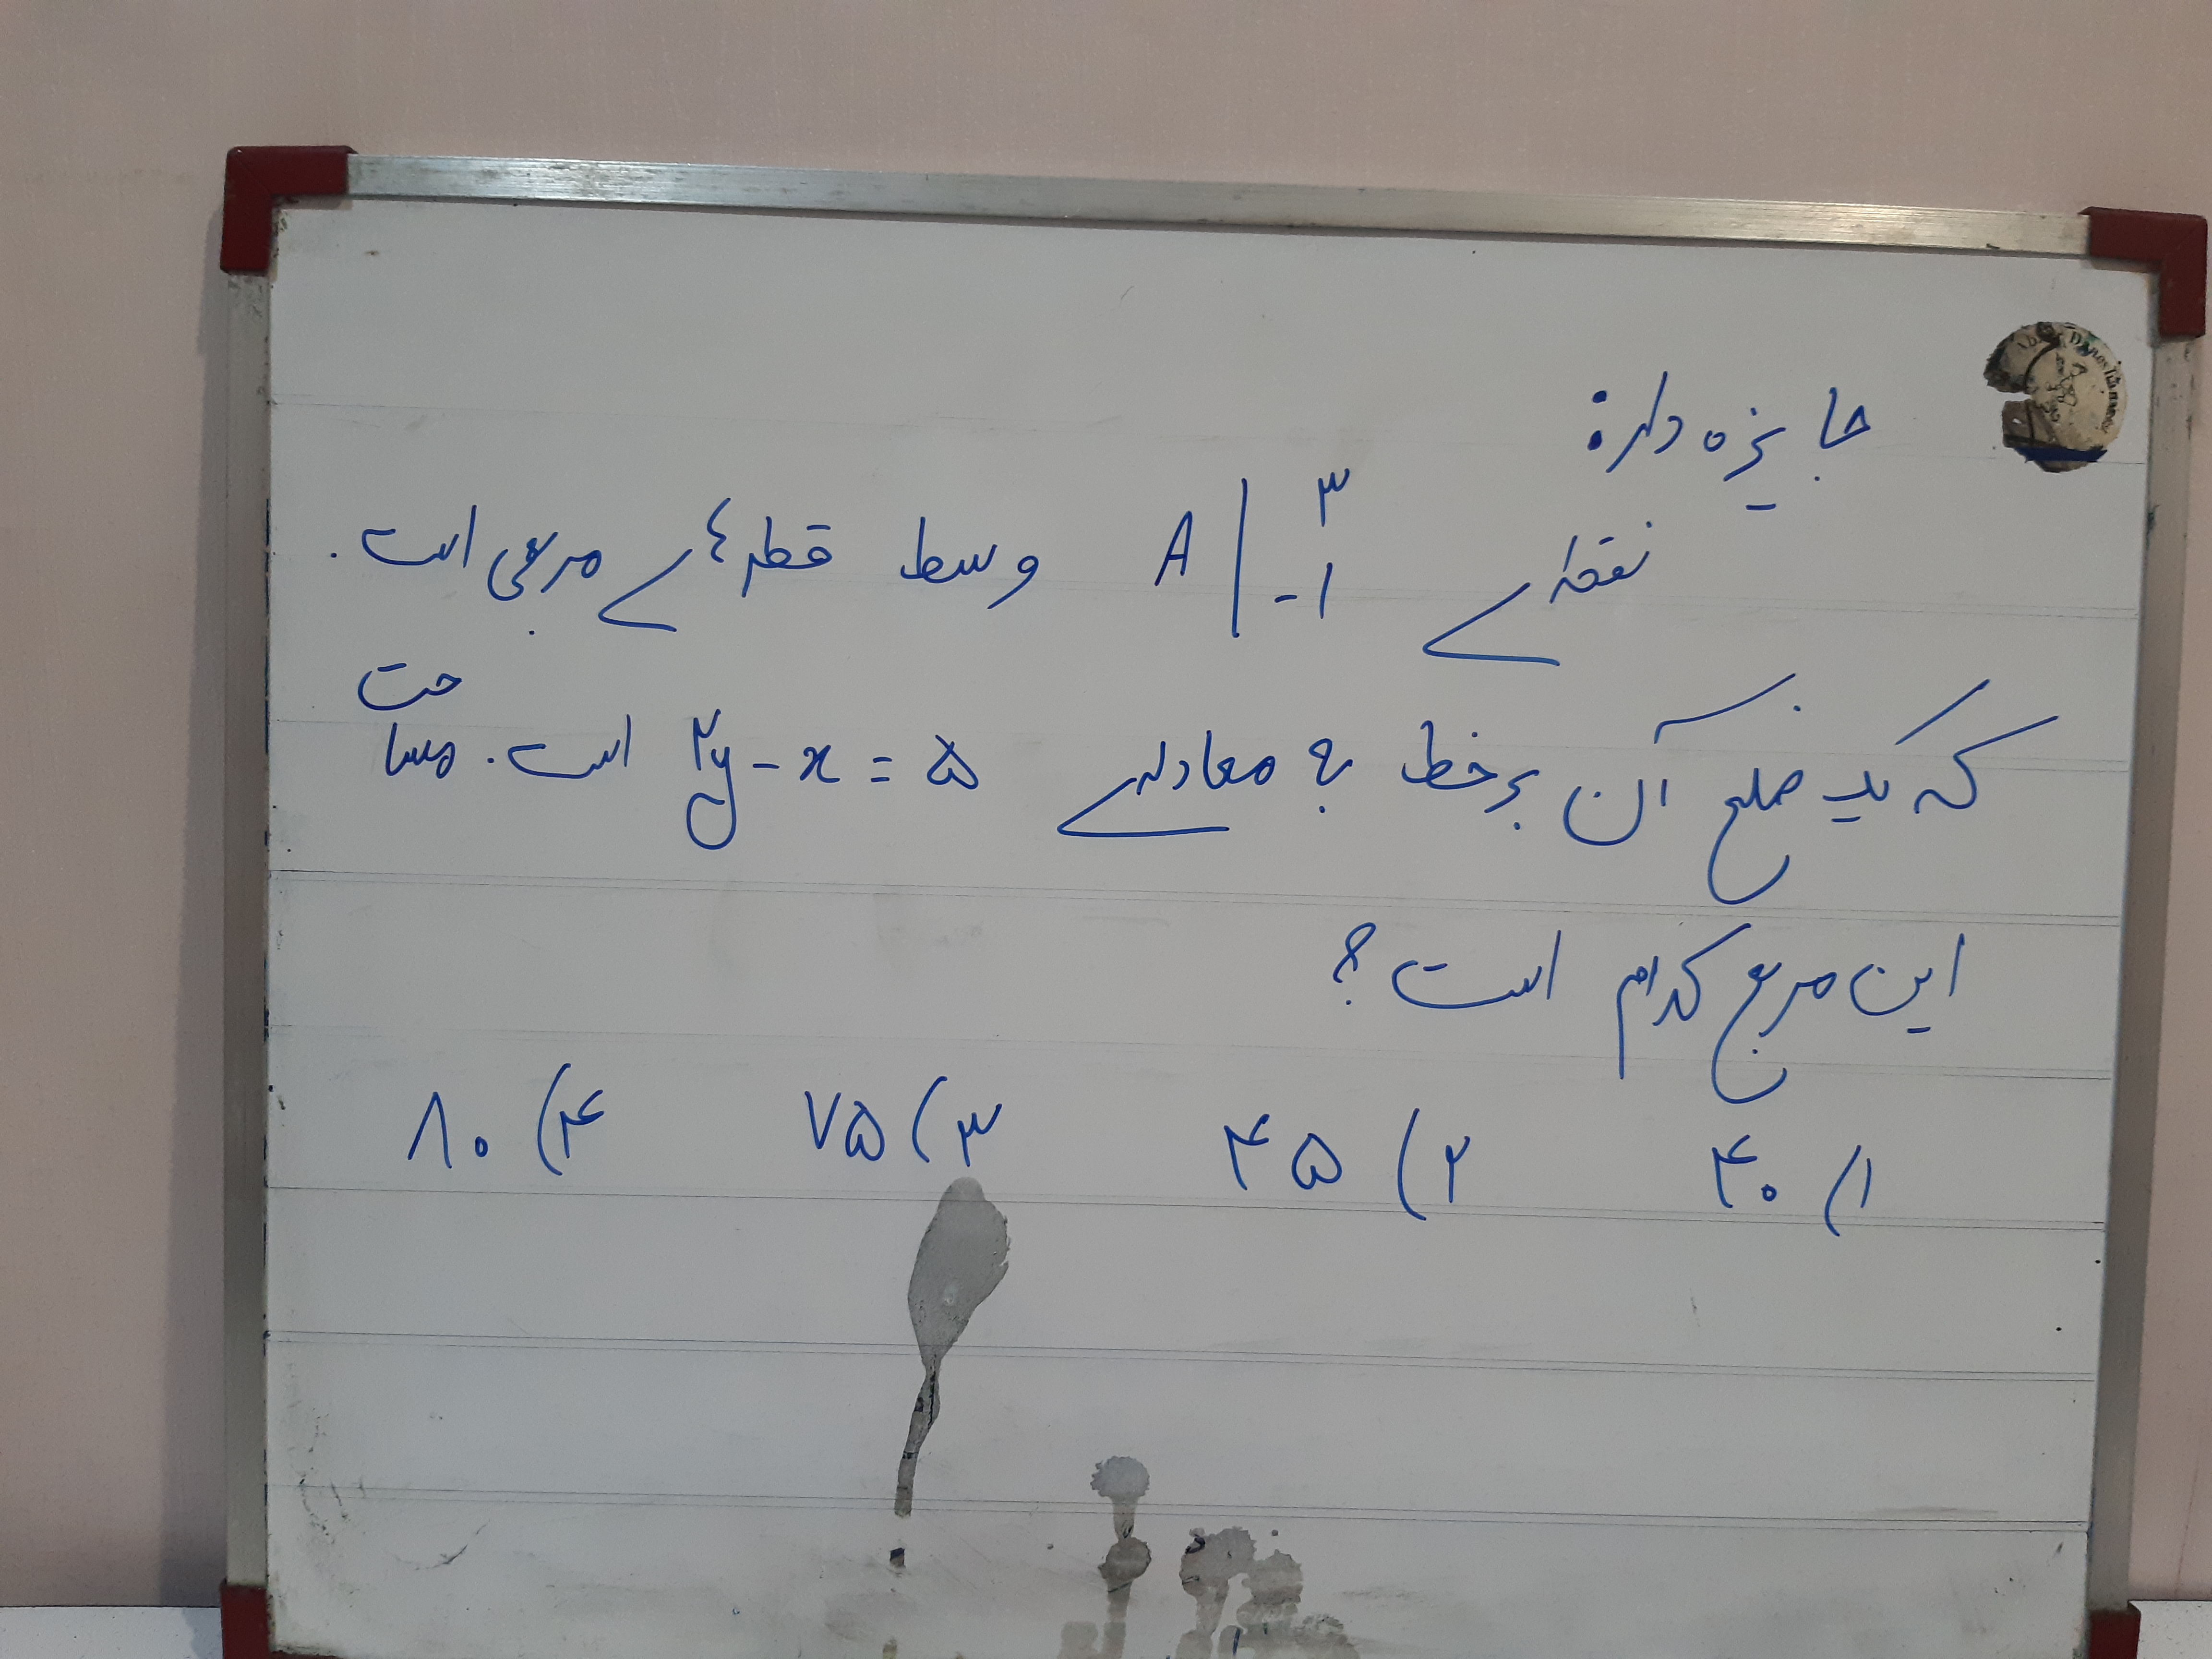 جایزه دار:
نقطه‌ے A | ۳ -۱ وسط قطرهاے مربعی است.
که یک ضلع آن بر خط به معادله‌ے ۲y - x = ۵ است. مساحت
این مربع کدام است؟
۱) ۴۰ ۲) ۴۵ ۳) ۷۵ ۴) ۸۰